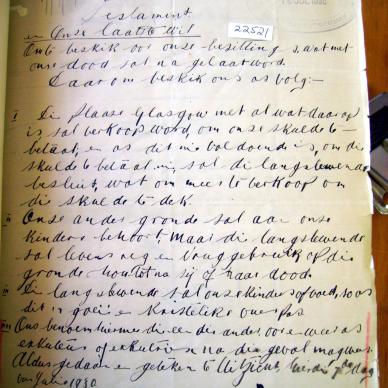 Testament
en Onse laatste wil
22521
Om te beskik oor onse besittings, wat met
onse dood sal na gelaat word.
Daarom beskik ons as volg:-
I Die Plaase Glasgow met al wat daar op
is sal verkoop word, om onse skulde te
betaal, en as dit nie voldoende is, om die
skulde te betaal nie, sal die langslewende
besluit, wat om meer te verkoop om
die skulde te dek.
II Onse ander gronde sal aan onse
kinders behoort, maar die langslewende
sal lewens reg en vruggebruik op die
gronde hou tot na sy of haar dood.
III Die langslewende sal onse kinders opvoed, soos
dit in goeie en Kristelike ouers pas
IIII Ons benoem hiermee die een die ander oorewer as
eksekuteur of eksekutrise na die geval mag wees.
Aldus gedaan en geteken te op hede die 7de dag
van Junie 1930